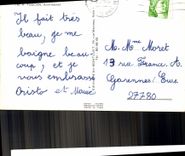 Il fait très
beau, je me
baigne beau-
coup, et je
vous embrasse
Cristo et Marie
M. Mme Moret
19 rue France. A.
Garennes/Eure
27780